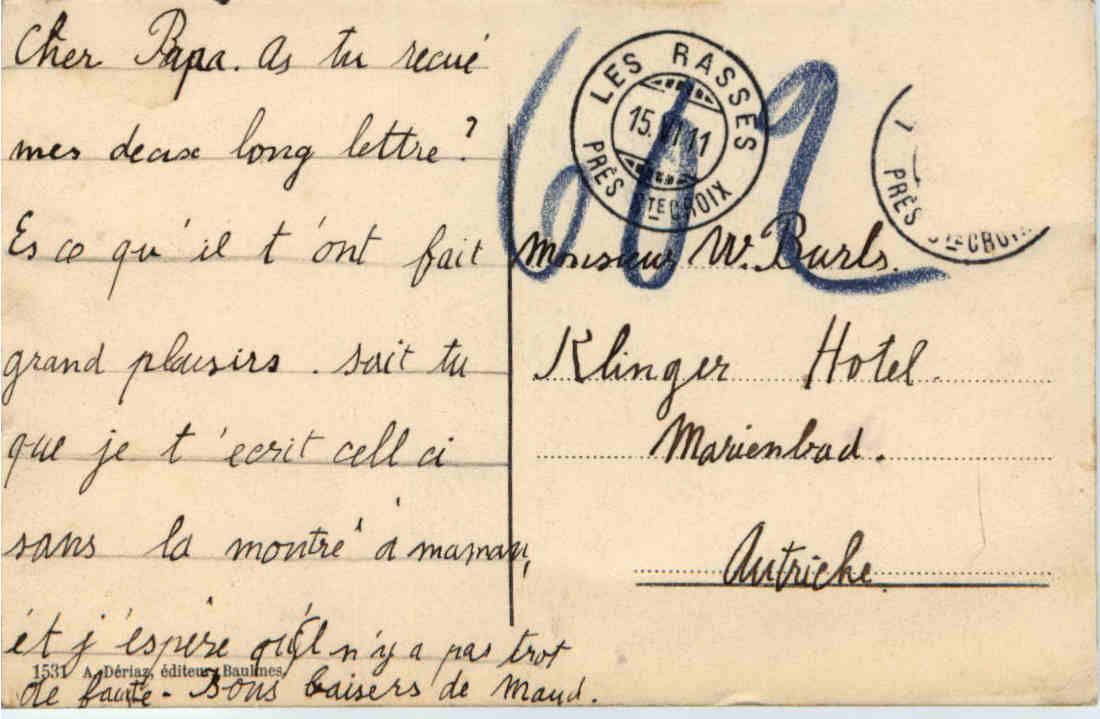 Cher Papa. As tu recué
mes deuxe long lettre?
Es ce qu'il t'ont fait
grand plaisirs. sait tu
que je t'écrit cell ci
sans la montré à maman,
ét j'éspère qu'il n'y a pas trot
de faute. Bons baisers de Maud.
1531 A. Dériaz, éditeur, Baulmes.
LES RASSES
15. VI 11
PRÈS STE CROIX
PRÈS STE CROIX
Monsieur W. Burls.
Klinger Hotel.
Marienbad.
Autriche